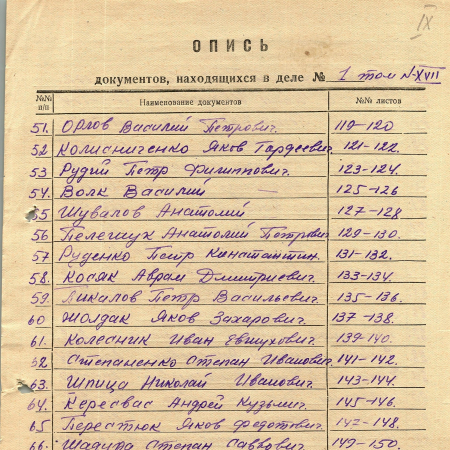 IX
ОПИСЬ
документов, находящихся в деле № 1 том N XVII
№№ п/п Наименование документов №№ листов
51. Орлов Василий Петрович. 119-120
52 Колисниченко Яков Гордеевич 121-122.
53 Рудий Петр Филиппович. 123-124.
54. Волк Василий — 125-126
55 Шувалов Анатолий 127-128
56 Пелещук Анатолий Петрович 129-130.
57 Руденко Петр Константин. 131-132.
58. Косяк Аврам Дмитриевич. 133-134.
59. Пикалов Петр Васильевич. 135-136.
60 Жолдак Яков Захарович. 137-138.
61. Колесник Иван Евтухович. 139-140.
62 Степаненко Степан Иванович. 141-142.
63. Шпица Николай Иванович. 143-144.
64. Кересвас Андрей Кузьмич. 145-146.
65 Перестюк Яков Федотович. 147-148.
66. Степан Саввович. 149-150.